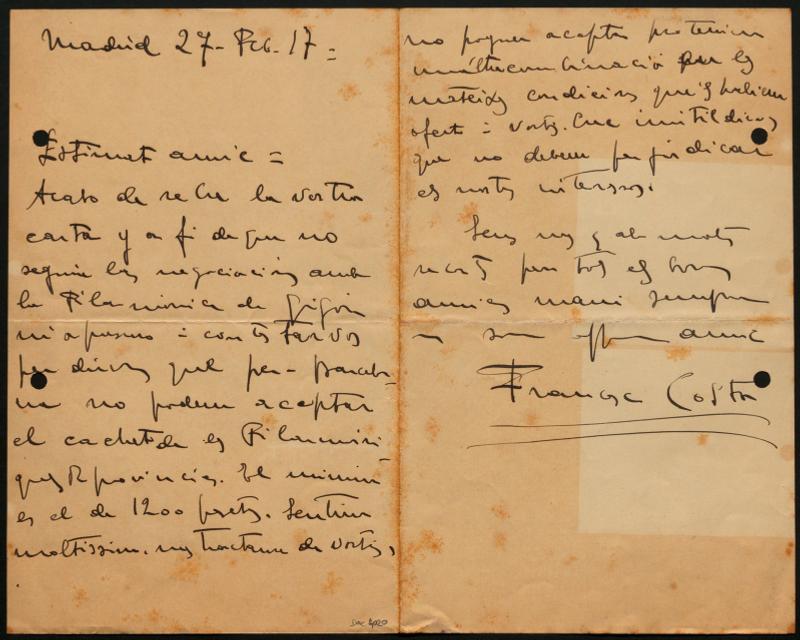 Madrid 27- Feb. 17 =
Estimat amic =
Acabo de rebre la vostra
carta y a fi de que no
seguin les negociacions amb
la Filarmónica de Gijón
m'apresuro á contestarvos
per dirvos que per - Barcelo-
na no podem acceptar
el cachet de les Filarmóni
ques de provincies. El minimum
es el de 1200 pesetas. Sentim
moltissim, no tractarse de vostés,
no poguer aceptar
combinació per les
mateixes condicions que'ls haliem
ofert á vostés. Crec inutil dirvos
que no debem perjudicar
els nostres interessos.
Sens mes y ab molts
recorts per tots els bons
amics mani sempre
a son affm amic
Francesc Costa